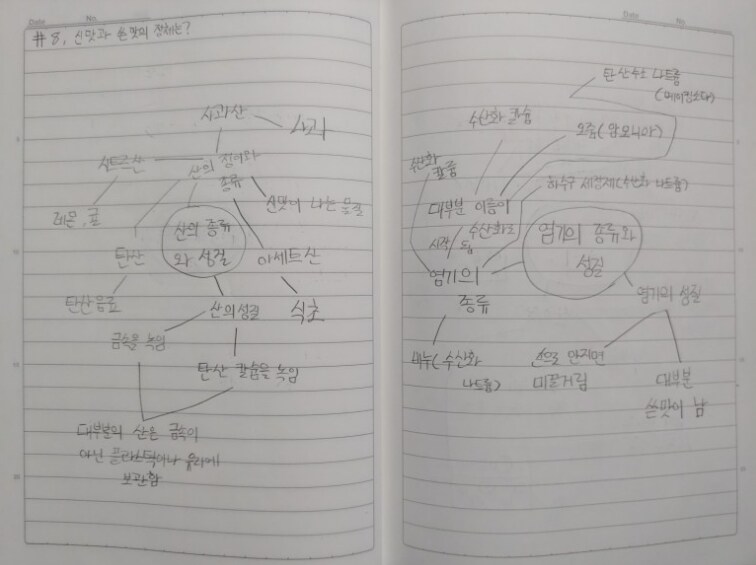 Date No.
#8, 신맛과 쓴맛의 정체는?
사과산
사과
시트르산
산의 정의와
종류
레몬, 귤
신맛이 나는 물질
산의 종류
와 성질
탄산
아세트산
탄산음료
산의 성질
식초
금속을 녹임
탄산 칼슘을 녹임
대부분의 산은 금속이
아닌 플라스틱이나 유리에
보관함
Date No.
탄산수소 나트륨
(베이킹소다)
수산화 칼슘
오줌(암모니아)
수산화
칼륨
하수구 세정제(수산화 나트륨)
대부분 이름이
수산화로
시작 됨
염기의 종류와
성질
염기의
종류
염기의 성질
비누(수산화
나트륨)
손으로 만지면
미끌거림
대부분
쓴맛이 남